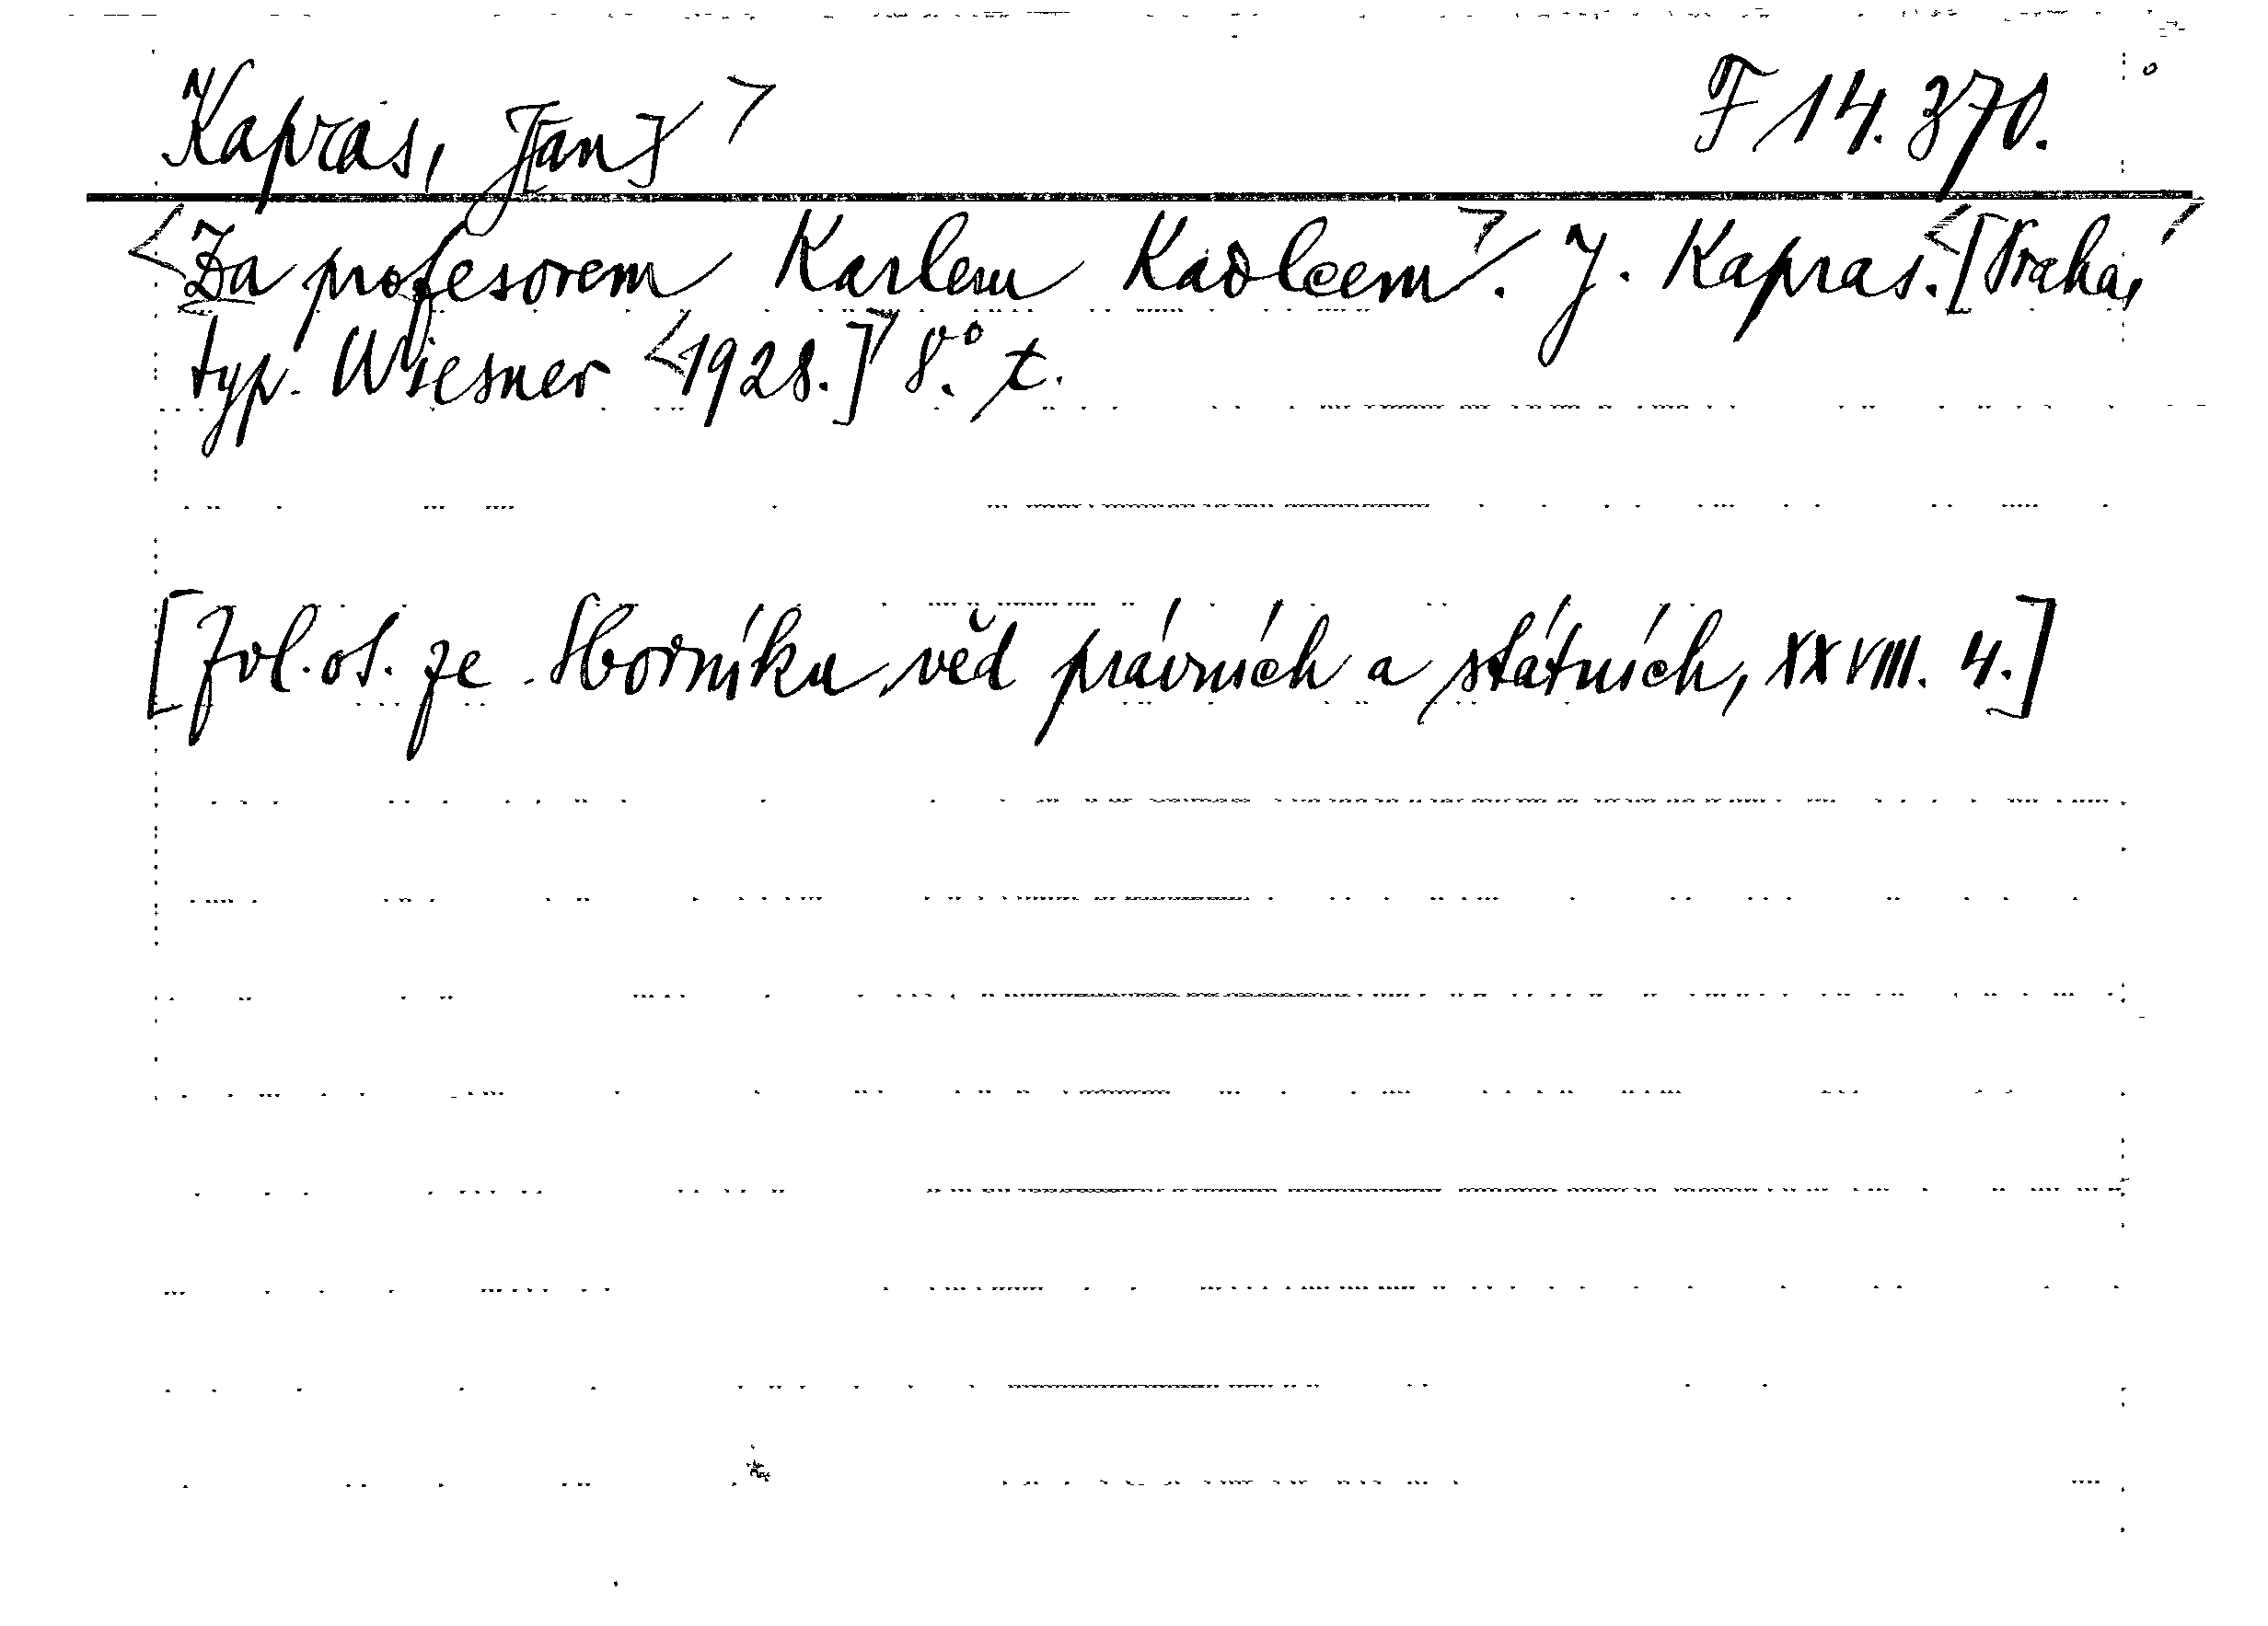 Kapras, J[an] > F 14.370.
<Za profesorem Karlem Kadlcem>. J. Kapras. <[Praha,>
typ. Wiesner <1928.]> 8.° t.
[Zvl. ot. ze Sborníku věd právních a státních, XXVIII. 4.]